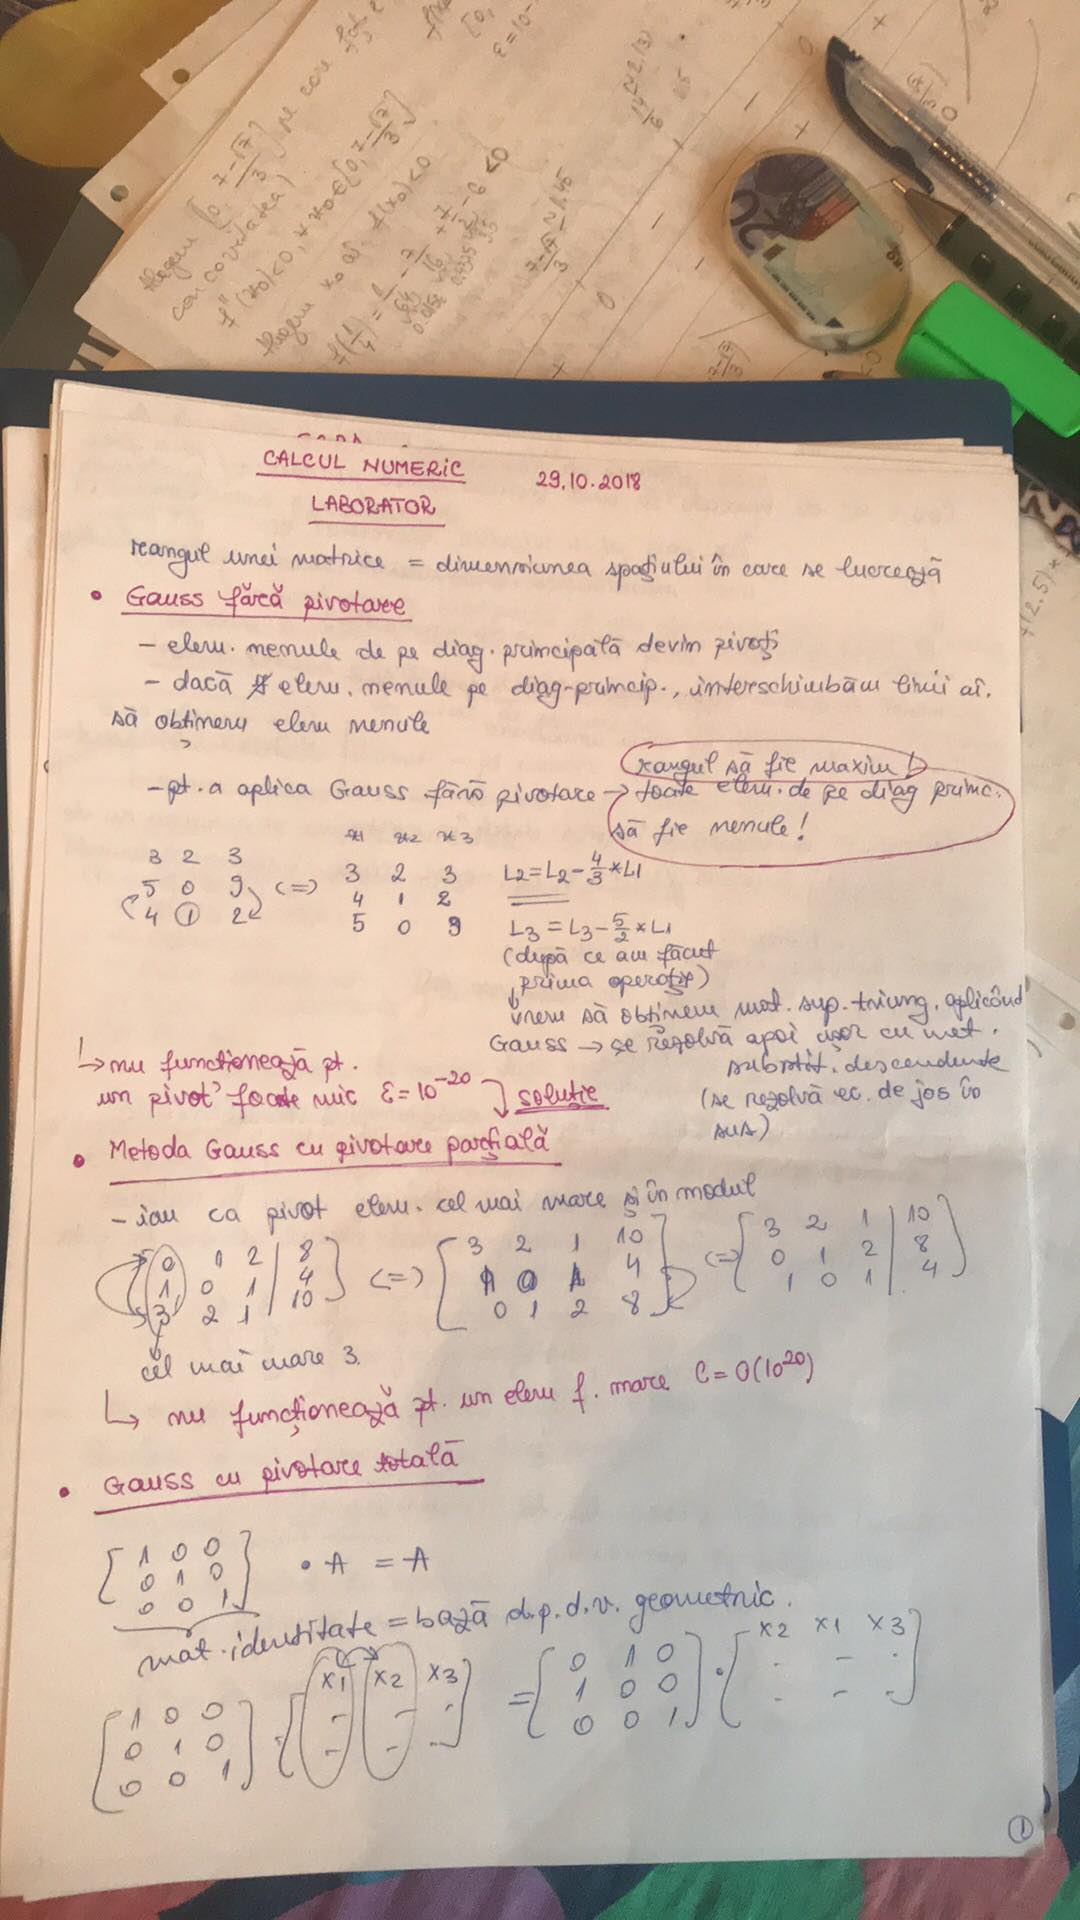 Alegem
concavitatea)
7-√7
3
ε=10
CALCUL NUMERIC
29.10.2018
LABORATOR
rangul unei matrice = dimensiunea spațiului în care se lucrează
• Gauss fără pivotare
- elem. nenule de pe diag. principală devin pivoți
- dacă ∄ elem. nenule pe diag-princip., interschimbăm linii aî.
să obținem elem nenule
rangul să fie maxim!
-pt. a aplica Gauss fără pivotare → toate elem. de pe diag princ.
să fie nenule!
x1 x2 x3
3 2 3
5 0 9 <=>
4 1 2
3 2 3
4 1 2
5 0 9
L2=L2-4/3*L1
L3=L3-5/2*L1
(după ce am făcut
prima operație)
vrem să obținem mat. sup. triung. aplicând
Gauss → se rezolvă apoi ușor cu met.
substit. descendente
(se rezolvă ec. de jos în
sus)
↳ nu funcționează pt.
un pivot foarte mic ε=10^-20 soluție
• Metoda Gauss cu pivotare parțială
- iau ca pivot elem. cel mai mare și în modul
0 1 2 | 8
1 0 1 | 4
3 2 1 | 10
<=>
3 2 1 10
1 0 1 4
0 1 2 8
<=>
3 2 1 | 10
0 1 2 | 8
1 0 1 | 4
cel mai mare 3.
↳ nu funcționează pt. un elem f. mare C=O(10^20)
• Gauss cu pivotare totală
1 0 0
0 1 0
0 0 1
• A = A
mat. identitate = bază d.p.d.v. geometric.
1 0 0
0 1 0
0 0 1
x1 x2 x3
=
0 1 0
1 0 0
0 0 1
x2 x1 x3
1